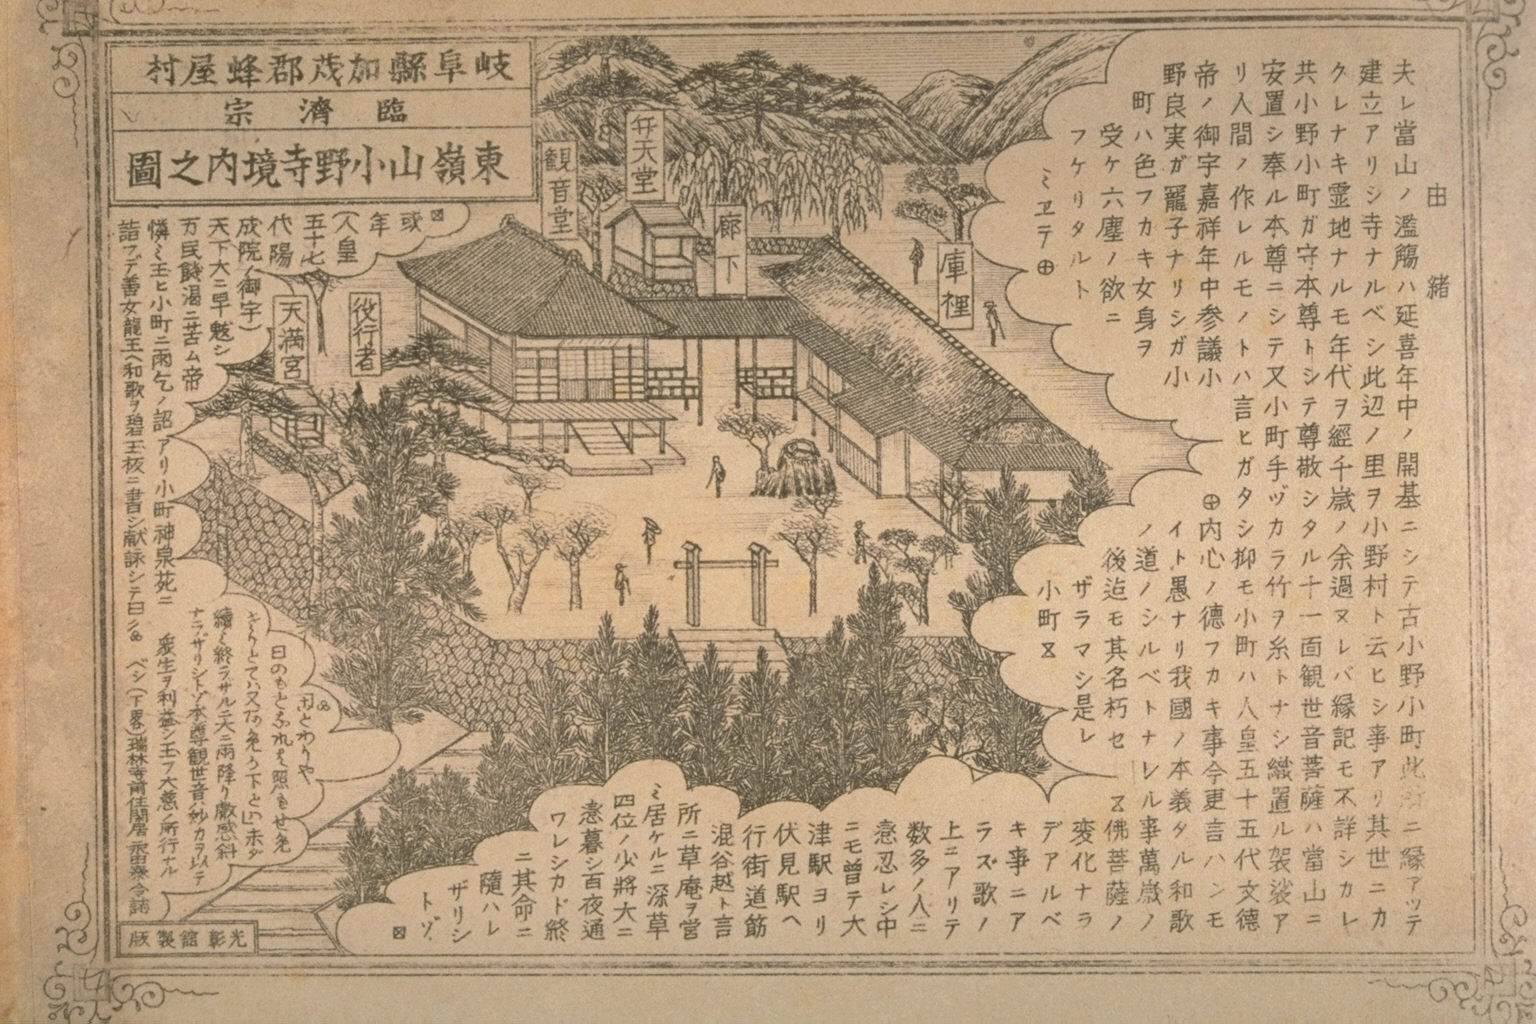 岐阜縣加茂郡蜂屋村
臨濟宗
東嶺山小野寺境内之圖
観音堂
弁天堂
廊下
庫裡
役行者
天満宮
由緒
夫レ當山ノ濫觴ハ延喜年中ノ開基ニシテ古小野小町此所ニ縁アッテ
建立アリシ寺ナルベシ此辺ノ里ヲ小野村ト云ヒシ事アリ其世ニカ
クレナキ霊地ナルモ年代ヲ經千歳ノ余過ヌレバ縁記モ不詳シカレ
共小野小町ガ守本尊トシテ尊敬シタル十一面観世音菩薩ハ當山ニ
安置シ奉ル本尊ニシテ又小町手ヅカラ竹ヲ糸トナシ織置ル袈裟ア
リ入間ノ作レルモノトハ言ヒガタシ抑モ小町ハ人皇五十五代文德
帝ノ御宇嘉祥年中参議小
野良実ガ寵子ナリシガ小
町ハ色フカキ女身ヲ
受ケ六塵ノ欲ニ
フケリタルト
ミヱテ⊕
⊕内心ノ德フカキ事今更言ハンモ
イト愚ナリ我國ノ本義タル和歌
ノ道ノシルベトナレル事萬歳ノ
後迠モ其名朽セ
ザラマシ是レ
小町
佛菩薩ノ
変化ナラ
デアルベ
キ事ニア
ラズ歌ノ
上ニアリテ
数多ノ人ニ
意忍レシ中
ニモ曾テ大
津駅ヨリ
伏見駅ヘ
行街道筋
混谷越ト言
所ニ草庵ヲ営
ミ居ケルニ深草
四位ノ少將大ニ
恋暮シ百夜通
ワレシカド終
ニ其命ニ
隨ハレ
ザリシ
トゾ
或
年
人皇
五十七
代陽
成院ノ御宇)
天下大ニ旱魃シ
万民餓渇ニ苦ム帝
憐ミ玉ヒ小町ニ雨乞ノ詔アリ小町神泉苑ニ
詣フデ善女龍王ヘ和歌ヲ碧玉板ニ書シ献詠シテ曰ク
ことわりや
日のもとなれは照もせめ
さりとては又天か下とは
讀ミ終ラザルニ大ニ雨降リ
ナラザリシトゾ本尊観世音ノ妙力ヲ以テ
衆生ヲ利益シ玉フ大慈ノ所行ナル
ベシ(下畧)瑞林寺前住
光彰館製版